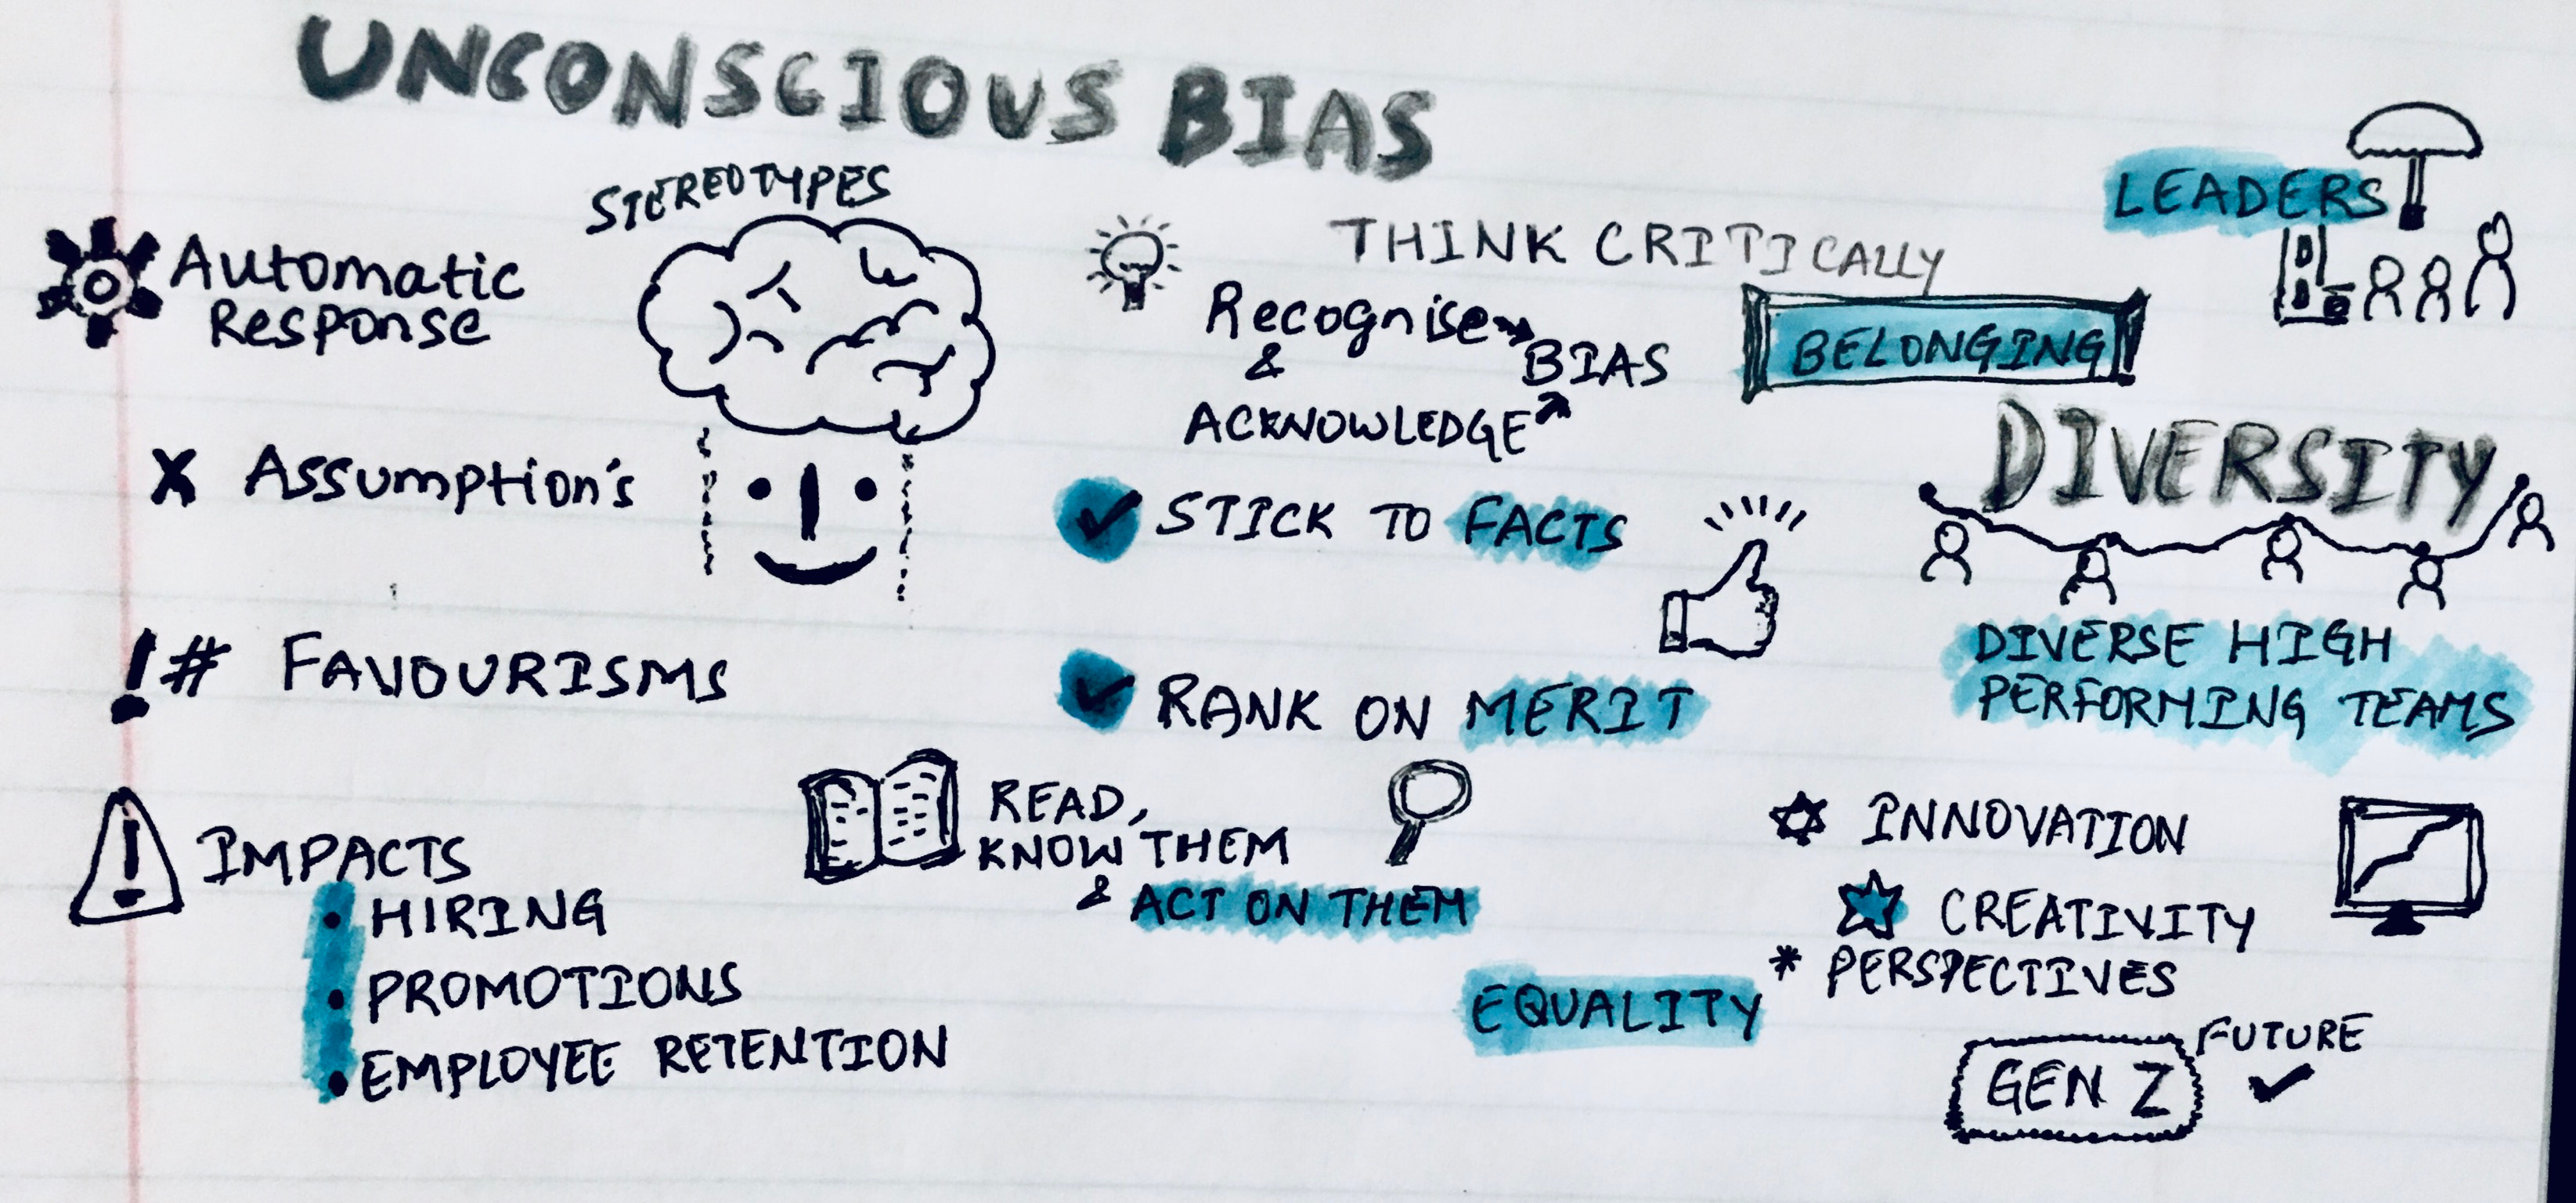 UNCONSCIOUS BIAS
STEREOTYPES
Automatic
Response
X Assumption's
!# FAVOURISMS
! IMPACTS
• HIRING
• PROMOTIONS
• EMPLOYEE RETENTION
THINK CRITICALLY
Recognise
&
ACKNOWLEDGE
BIAS
✓ STICK TO FACTS
✓ RANK ON MERIT
READ,
KNOW THEM
& ACT ON THEM
EQUALITY
LEADERS
BELONGING
DIVERSITY
DIVERSE HIGH
PERFORMING TEAMS
INNOVATION
CREATIVITY
* PERSPECTIVES
GEN Z
FUTURE
✓